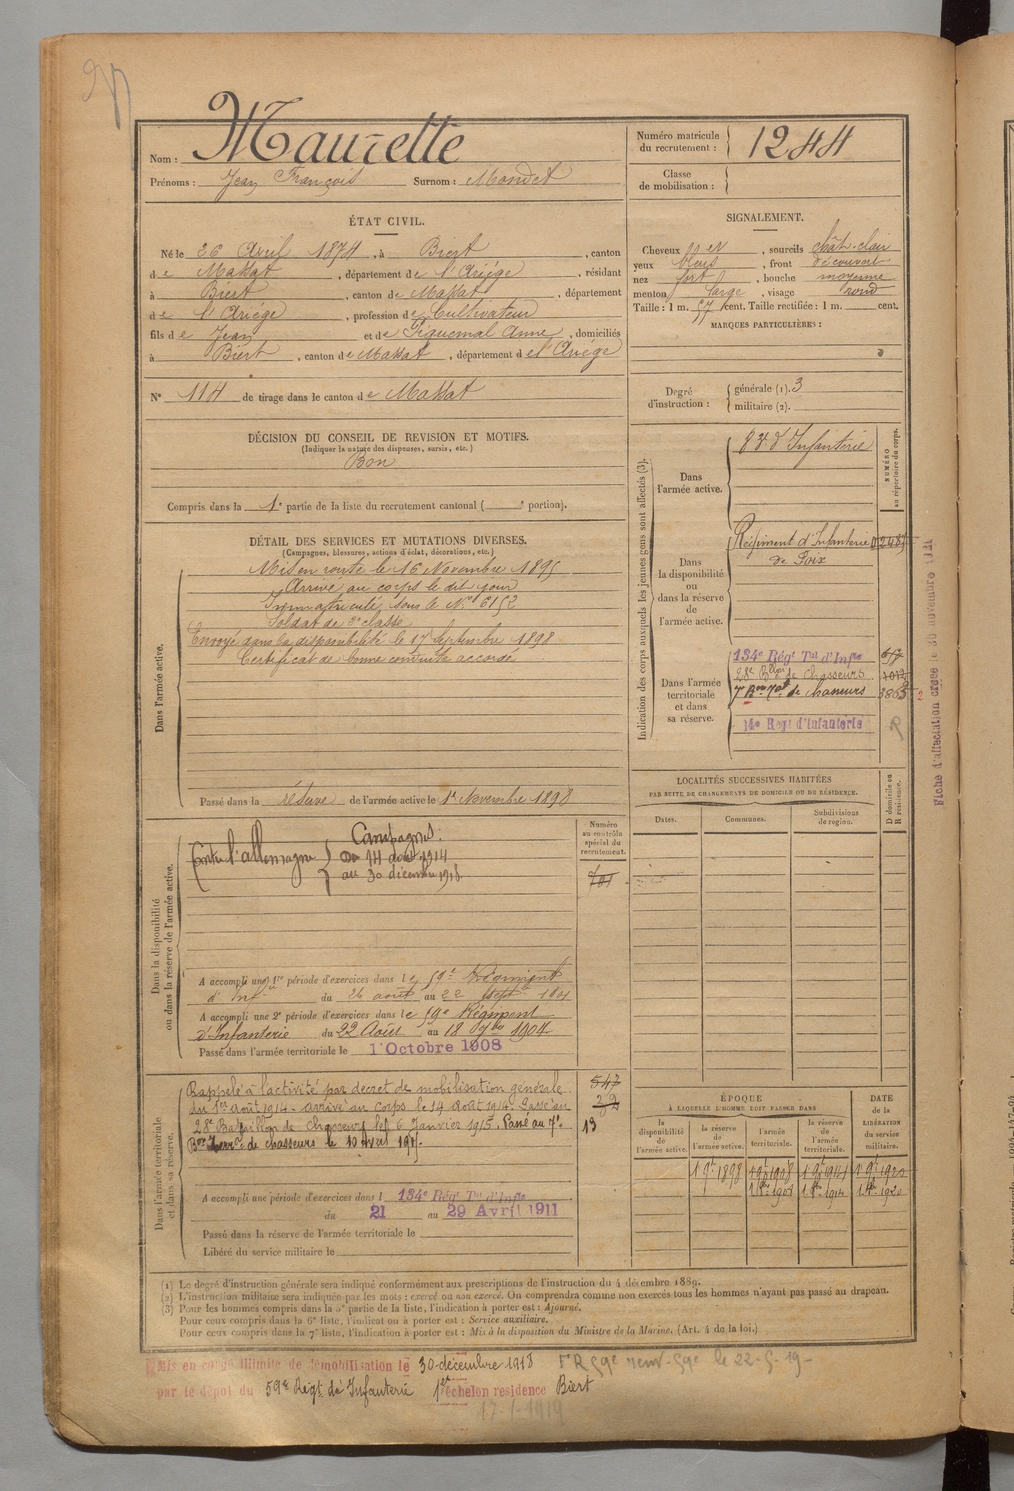 Nom : Maurette
Prénoms : Jean François Surnom : Mondet
Numéro matricule du recrutement : 1244
Classe de mobilisation :
ÉTAT CIVIL.
Né le 26 Avril 1874, à Biert, canton
de Massat, département de l'Ariége, résidant
à Biert, canton de Massat, département
de l'Ariége, profession de Cultivateur
fils de Jean et de Piquemal Anne, domiciliés
à Biert, canton de Massat, département de l'Ariége
N° 114 de tirage dans le canton de Massat
DÉCISION DU CONSEIL DE REVISION ET MOTIFS.
(Indiquer la nature des dispenses, sursis, etc.)
Bon
Compris dans la 1e partie de la liste du recrutement cantonal ( e portion).
SIGNALEMENT.
Cheveux , sourcils chât-clair
yeux bleus, front découvert
nez fort, bouche moyenne
menton large, visage rond
Taille : 1 m. 57 cent. Taille rectifiée : 1 m. cent.
MARQUES PARTICULIÈRES :
Degré d'instruction : générale (1). 3
militaire (2).
DÉTAIL DES SERVICES ET MUTATIONS DIVERSES.
(Campagnes, blessures, actions d'éclat, décorations, etc.)
Dans l'armée active.
Mis en route le 16 Novembre 1895
Arrivé au corps le dit jour
Immatriculé sous le No 6152
Soldat de 2e classe
Envoyé dans la disponibilité le 17 Septembre 1898
Certificat de bonne conduite accordé
Passé dans la réserve de l'armée active le 1er Novembre 1898
Indication des corps auxquels les jeunes gens sont affectés (3).
NUMÉRO au répertoire du corps.
Dans l'armée active.
83e d'Infanterie
Dans la disponibilité ou dans la réserve de l'armée active.
Régiment d'Infanterie
de Foix
Dans l'armée territoriale et dans sa réserve.
134e Régt Tal d'Infie
28e Bllon de Chasseurs
7 Bon Tal de chasseurs
14e Régt d'Infanterie
Fiche d'affectation créée le 30 novembre
LOCALITÉS SUCCESSIVES HABITÉES
PAR SUITE DE CHANGEMENTS DE DOMICILE OU DE RÉSIDENCE.
Dates.
Communes.
Subdivisions de région.
D domicile ou R résidence.
Dans la disponibilité ou dans la réserve de l'armée active.
Numéro au contrôle spécial du recrutement.
Campagnes:
Contre l'allemagne
Du 14 août 1914
au 30 décembre 1918.
A accompli une 1re période d'exercices dans le 59e Régiment
d'Inf du 26 août au 22 Sept 1901
A accompli une 2e période d'exercices dans le 59e Régiment
d'Infanterie du 22 Août au 18 7bre 1904
Passé dans l'armée territoriale le 1 Octobre 1908
Dans l'armée territoriale et dans sa réserve.
547
39
13
Rappelé à l'activité par décret de mobilisation générale
du 1er août 1914 - arrivé au corps le 14 août 1914. Passé au
28e Bataillon de Chasseurs le 6 Janvier 1915. Passé au 7e
Bon de chasseurs le 10 avril 1915.
A accompli une période d'exercices dans l 134e Régt Tal d'Infie
du 21 au 29 Avril 1911
Passé dans la réserve de l'armée territoriale le
Libéré du service militaire le
ÉPOQUE
À LAQUELLE L'HOMME DOIT PASSER DANS
la disponibilité de l'armée active.
la réserve de l'armée active.
l'armée territoriale.
la réserve de l'armée territoriale.
DATE de la LIBÉRATION du service militaire.
(1) Le degré d'instruction générale sera indiqué conformément aux prescriptions de l'instruction du 4 décembre 1889.
(2) L'instruction militaire sera indiquée par les mots : exercé ou non exercé. On comprendra comme non exercés tous les hommes n'ayant pas passé au drapeau.
(3) Pour les hommes compris dans la 5e partie de la liste, l'indication à porter est : Ajourné.
Pour ceux compris dans la 6e liste, l'indication à porter est : Service auxiliaire.
Pour ceux compris dans la 7e liste, l'indication à porter est : Mis à la disposition du Ministre de la Marine. (Art. 4 de la loi.)
Mis en congé illimité de démobilisation le 30 décembre 1918
par le dépôt du 59e Régt. de Infanterie 1er échelon residence Biert
17-1-1919